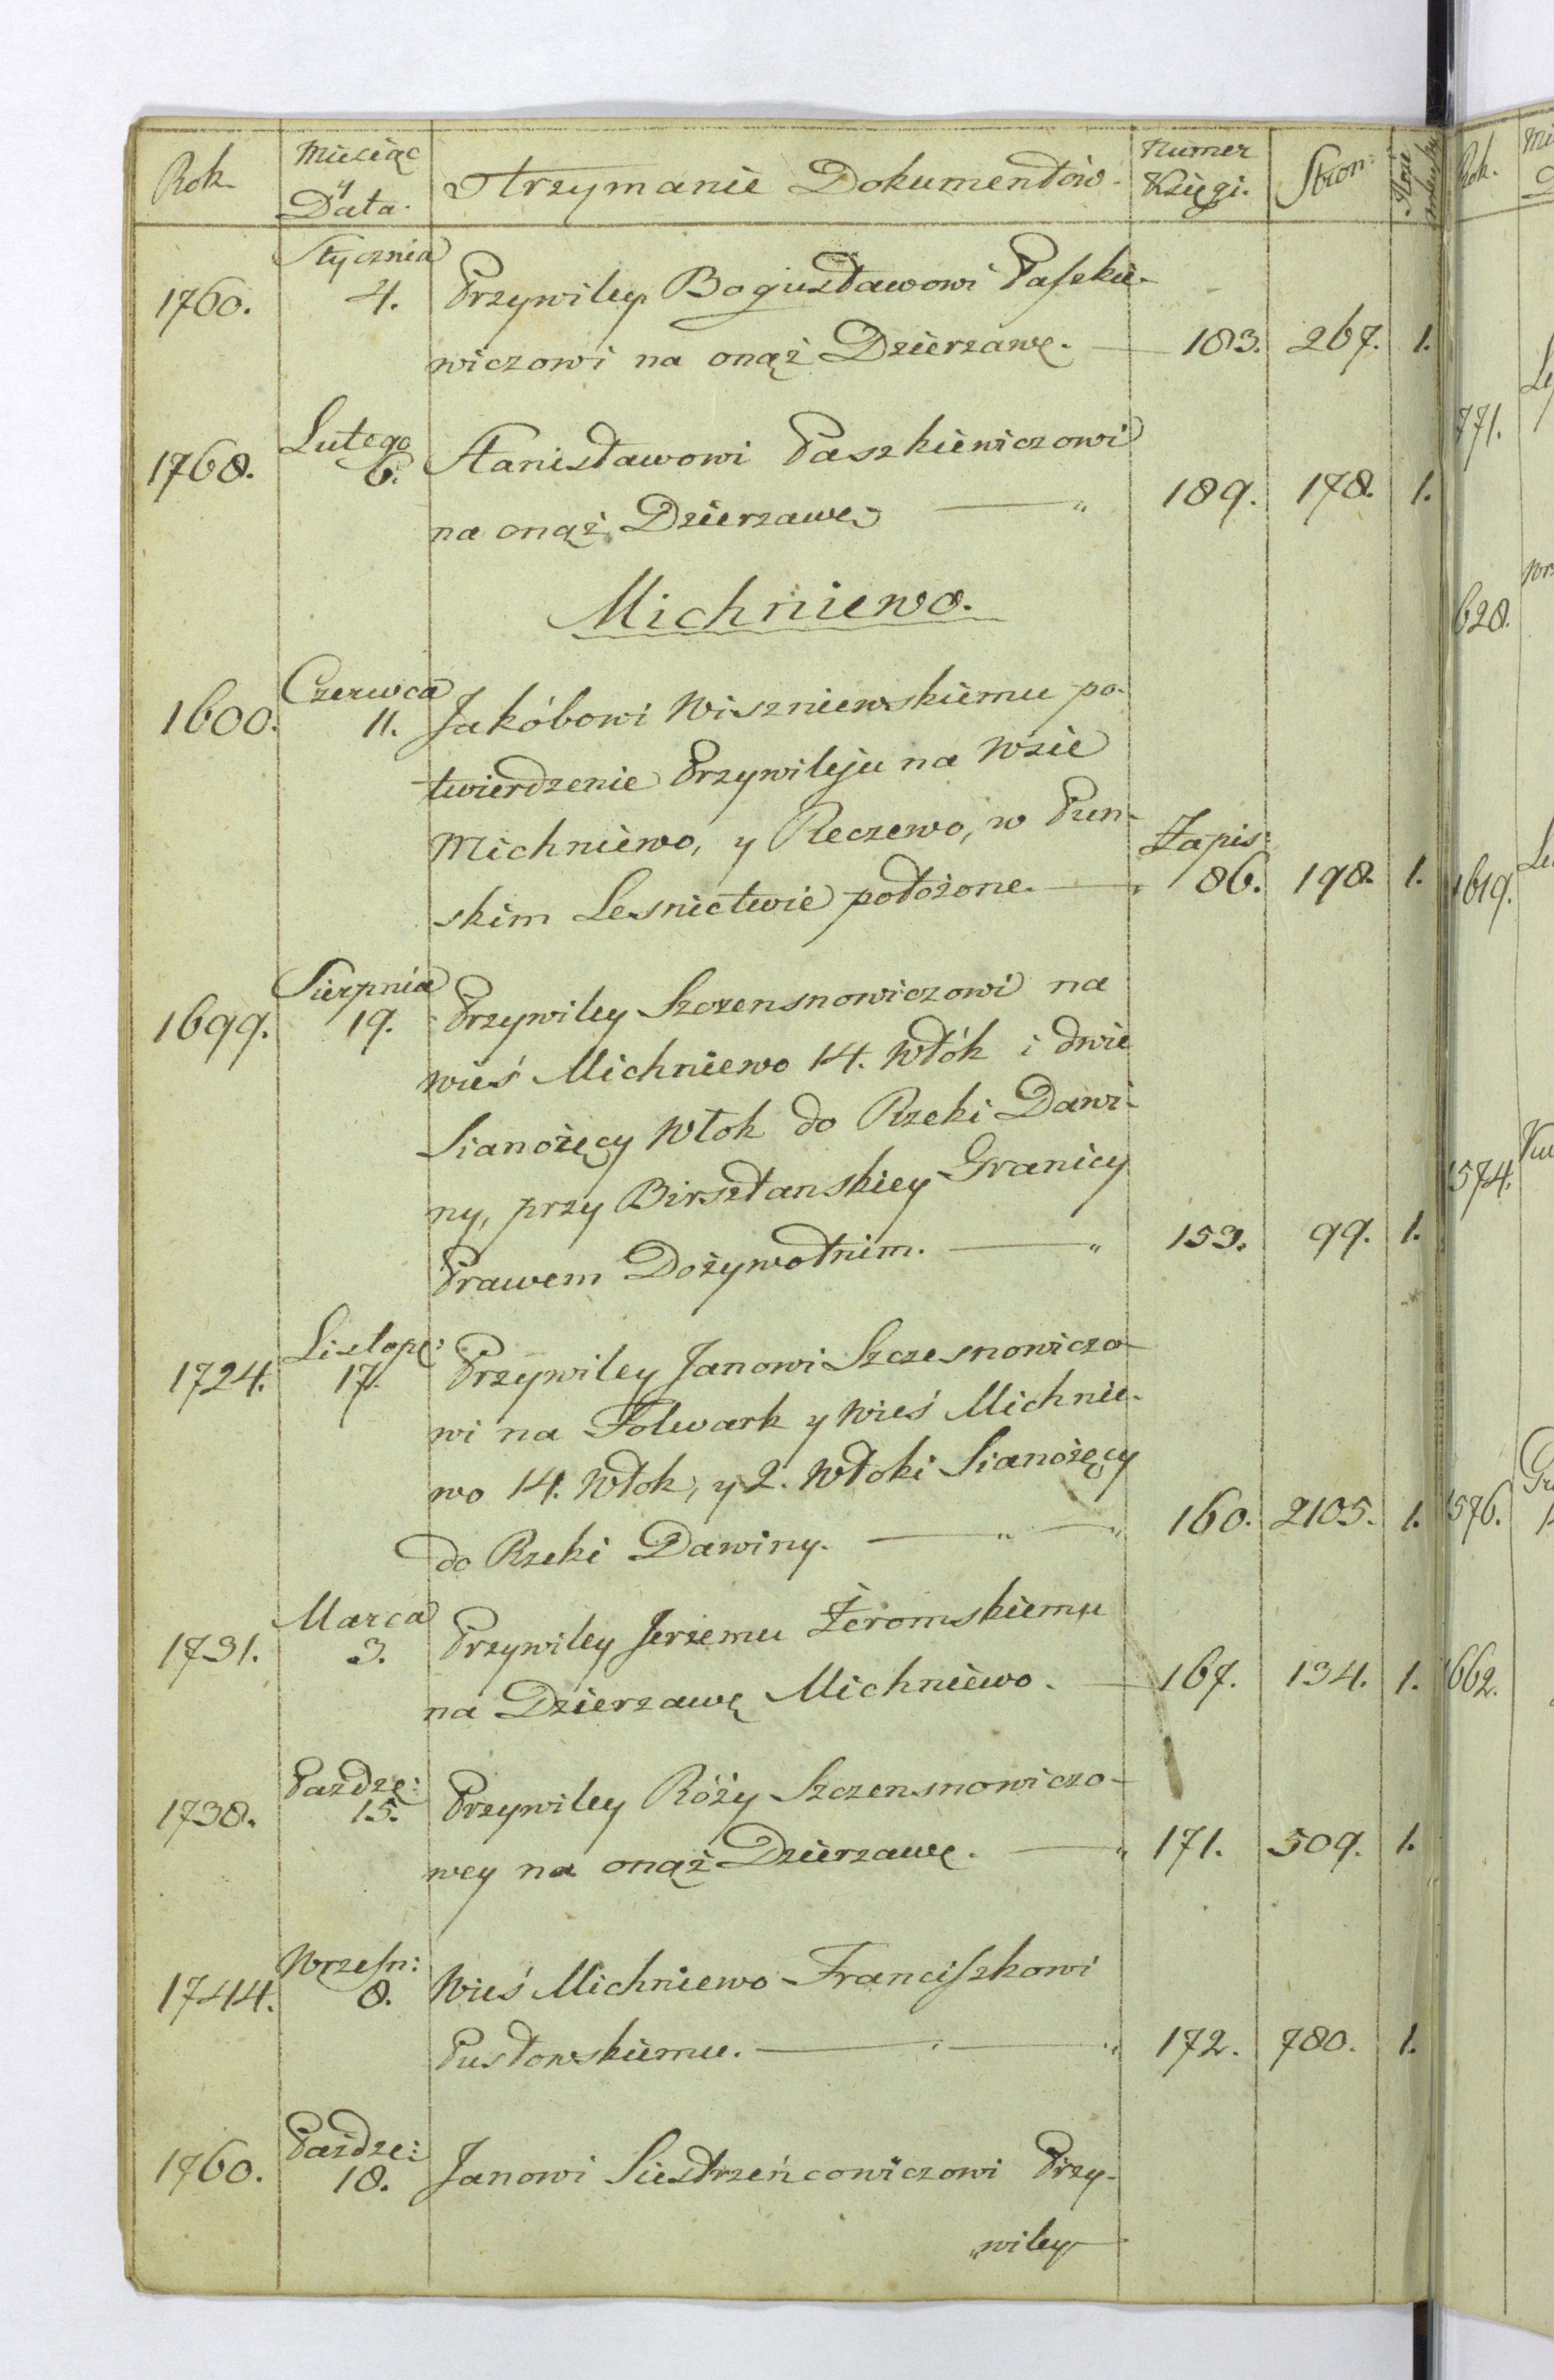 Rok. Miesiąc y Data. Otrzymanie Dokumentów. Numer Księgi. Stron:
1760. Stycznia 4. Przywiley Bogusławowi Paſzkie-
wiczowi na onąż Dzierzawę. — 183. 267. 1.
1768. Lutego 6. Stanisławowi Paszkiewiczowi
na onąż Dzierzawę — " 189. 178. 1.
Michniewo.
1600. Czerwca 11. Jakóbowi Wiszniewskiemu po-
twierdzenie Przywileju na Wsie
Michniewo, y Reczewo, w Pun-
skim Lesnictwie położone. — " Zapis: 86. 198. 1.
1699. Sierpnia 19. Przywiley Szczensnowiczowi na
wieś Michniewo 14. Włók i dwie
Sianożęcy Włok do Rzeki Dawi-
ny, przy Birsztanskiey Granicy
Prawem Dożywotnim. — " 153. 99. 1.
1724. Listopę: 17. Przywiley Janowi Szczesnowiczo-
wi na Folwark y Wieś Michnie-
wo 14. Włok, y 2. Włoki Sianożęcy
do Rzeki Dawiny. — " — " 160. 2105. 1.
1731. Marca 3. Przywiley Jerzemu Żeromskiemu
na Dzierzawę Michniewo. — 167. 134. 1.
1738. Pazdzę: 15. Przywiley Róży Szczensnowiczo-
wey na onąż Dzierzawę. — " 171. 509. 1.
1744. Wrzeſn: 8. Wieś Michniewo Franciſzkowi
Pusłowskiemu. — " — " 172. 780. 1.
1760. Paźdze: 18. Janowi Siestrzeńcowiczowi Przy-
"wiley
Rok.
771.
628.
1619.
1574.
1576.
1662.